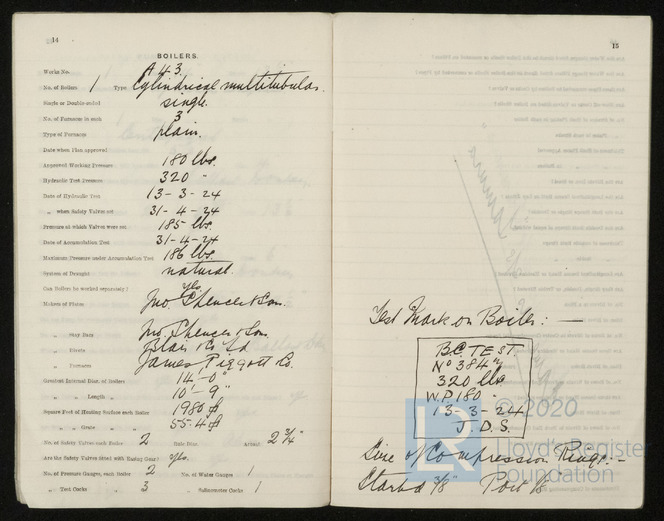 14
BOILERS.
Works No. A 43.
No. of Boilers 1 Type Cylindrical multitubular.
Single or Double-ended single.
No. of Furnaces in each 3
Type of Furnaces plain.
Date when Plan approved
Approved Working Pressure 180 lbs.
Hydraulic Test Pressure 320 "
Date of Hydraulic Test 13-3-24
" when Safety Valves set 31-4-24
Pressure at which Valves were set 185 lbs.
Date of Accumulation Test 31-4-24
Maximum Pressure under Accumulation Test 186 lbs.
System of Draught natural.
Can Boilers be worked separately? yes.
Makers of Plates Jno. Spencer & Son.
" Stay Bars Jno. Spencer & Son.
" Rivets Blair & Co Ld
" Furnaces James Piggott & Co.
Greatest Internal Diam. of Boilers 14'-0"
" " Length " 10'-9"
Square Feet of Heating Surface each Boiler 1980
" " Grate " " 55.4
No. of Safety Valves each Boiler 2 Rule Diam. Actual 2 3/4"
Are the Safety Valves fitted with Easing Gear? Yes.
No. of Pressure Gauges, each Boiler 2 No. of Water Gauges 1
" Test Cocks " 3 " Salinometer Cocks 1
15
Test Mark on Boiler: —
B.C. TEST.
No 384
320 lbs
W.P 180
13-3-24
J.D.S.
Line of Compression Rings: —
Starbd 3/8" Port 1/8
© 2020
LR
Lloyd's Register
Foundation